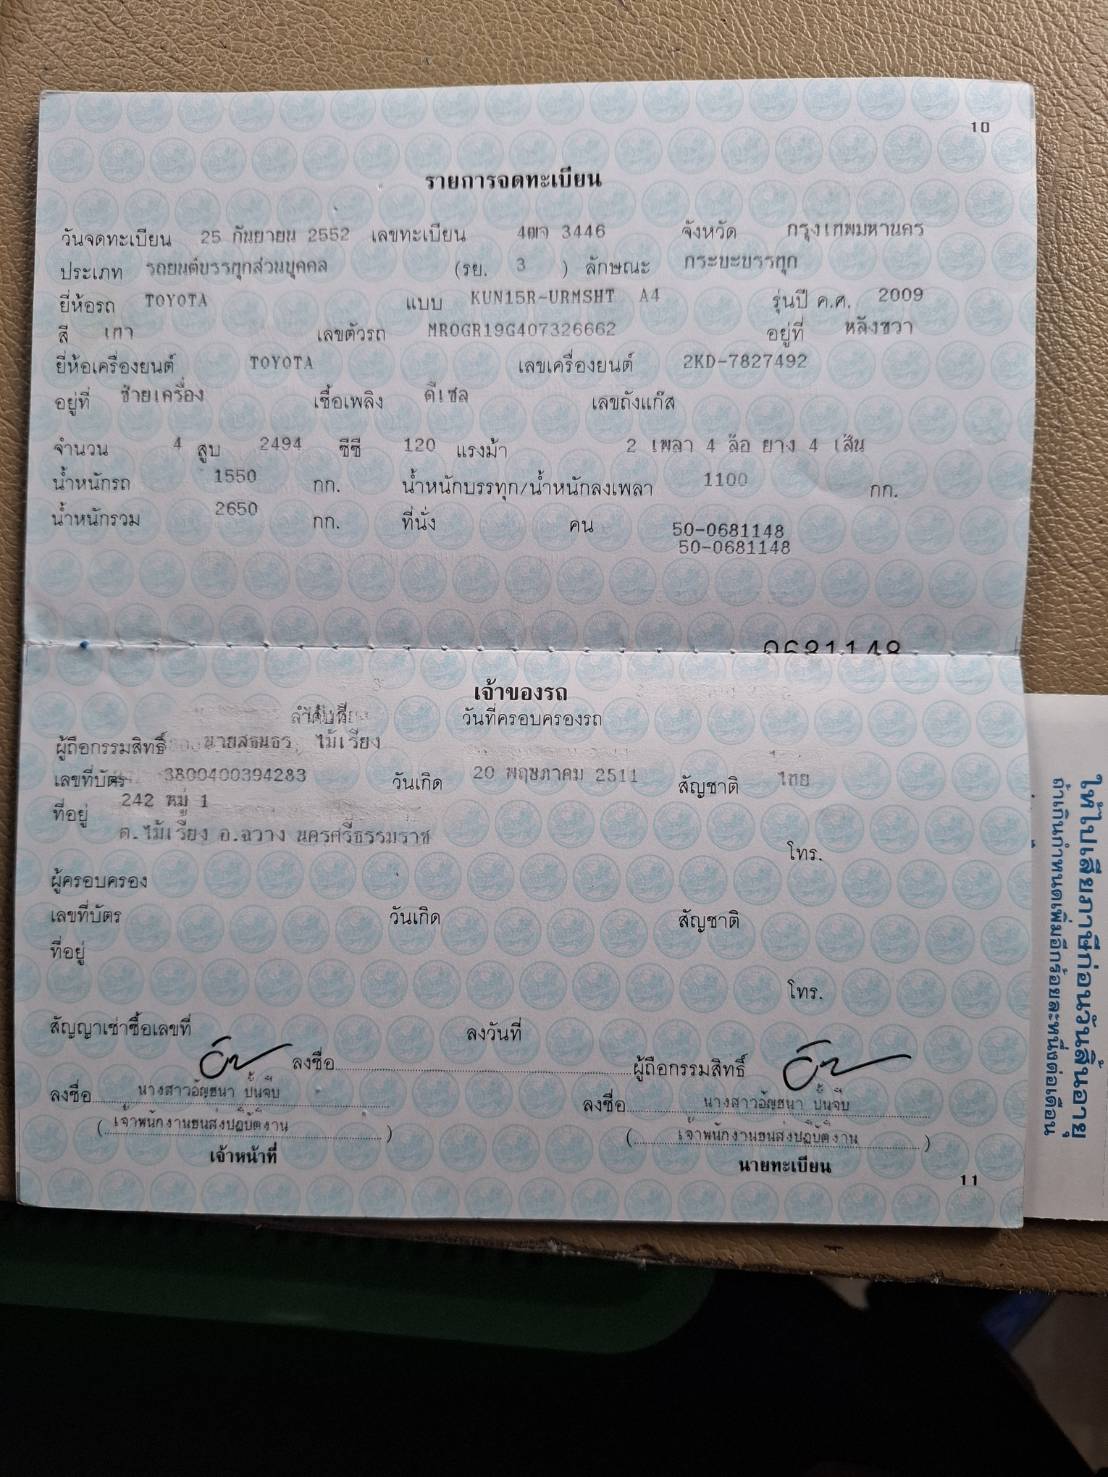 10
รายการจดทะเบียน
วันจดทะเบียน 25 กันยายน 2552 เลขทะเบียน 3446 จังหวัด กรุงเทพมหานคร
ประเภท รถยนต์บรรทุกส่วนบุคคล (รย. 3 ) ลักษณะ กระบะบรรทุก
ยี่ห้อรถ TOYOTA แบบ KUN15R-URMSHT A4 รุ่นปี ค.ศ. 2009
สี เทา เลขตัวรถ MR0GR19G407326662 อยู่ที่ หลังขวา
ยี่ห้อเครื่องยนต์ TOYOTA เลขเครื่องยนต์ 2KD-7827492
อยู่ที่ ซ้ายเครื่อง เชื้อเพลิง ดีเซล เลขถังแก๊ส
จำนวน 4 สูบ 2494 ซีซี 120 แรงม้า 2 เพลา 4 ล้อ ยาง 4 เส้น
น้ำหนักรถ 1550 กก. น้ำหนักบรรทุก/น้ำหนักลงเพลา 1100 กก.
น้ำหนักรวม 2650 กก. ที่นั่ง คน 50-0681148
50-0681148
0681148
เจ้าของรถ
วันที่ครอบครองรถ
ผู้ถือกรรมสิทธิ์ ไม้เรียง
เลขที่บัตร 3800400394283 วันเกิด 20 พฤษภาคม 2511 สัญชาติ ไทย
ที่อยู่ 242 หมู่ 1
ต.ไม้เรียง อ.ฉวาง นครศรีธรรมราช
โทร.
ผู้ครอบครอง
เลขที่บัตร วันเกิด สัญชาติ
ที่อยู่
โทร.
สัญญาเช่าซื้อเลขที่ ลงวันที่
ลงชื่อ ผู้ถือกรรมสิทธิ์
ลงชื่อ นางสาวอัญชนา ปั้นจีบ ลงชื่อ นางสาวอัญชนา ปั้นจีบ
( เจ้าพนักงานขนส่งปฏิบัติงาน ) ( เจ้าพนักงานขนส่งปฏิบัติงาน )
เจ้าหน้าที่ นายทะเบียน
11
ให้ไปเสียภาษีก่อนวันสิ้นอายุ
ถ้าเกินกำหนดเพิ่มอีกร้อยละหนึ่งต่อเดือน